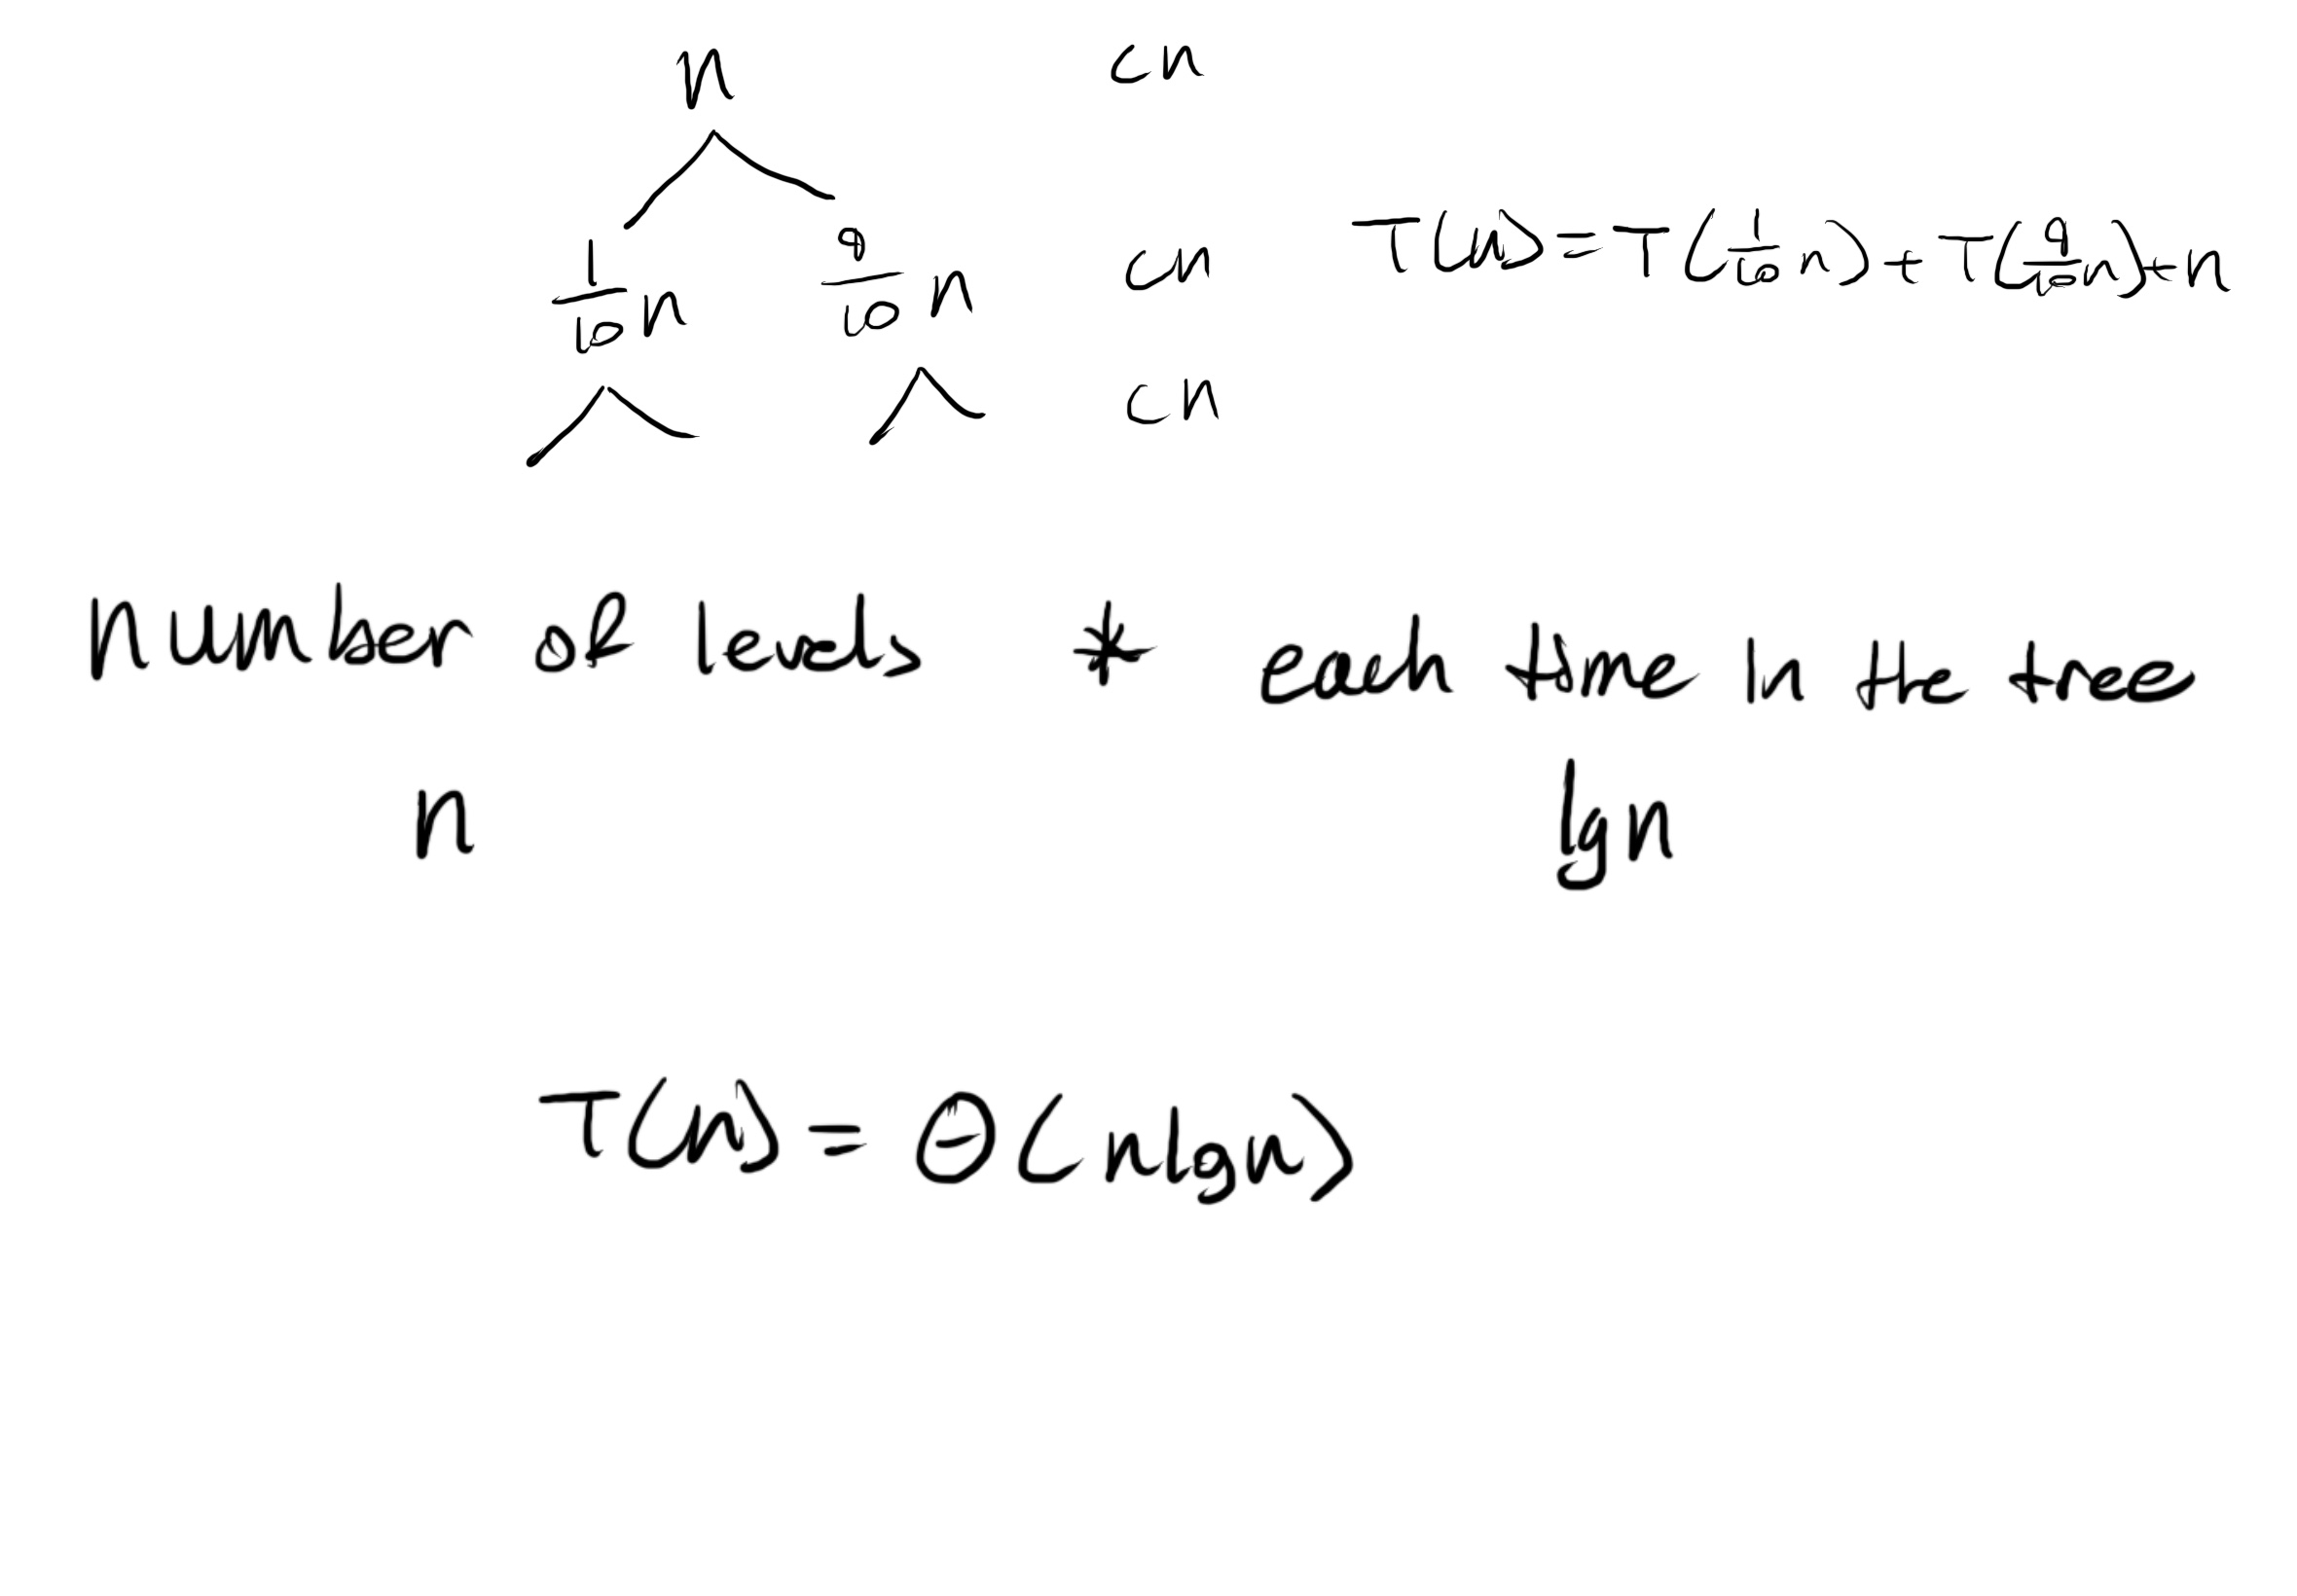 n cn
1/10 n 9/10 n cn T(n) = T(1/10 n) + T(9/10 n) + n
cn
number of levels * each time in the tree
n lgn
T(n) = Θ(nlgn)